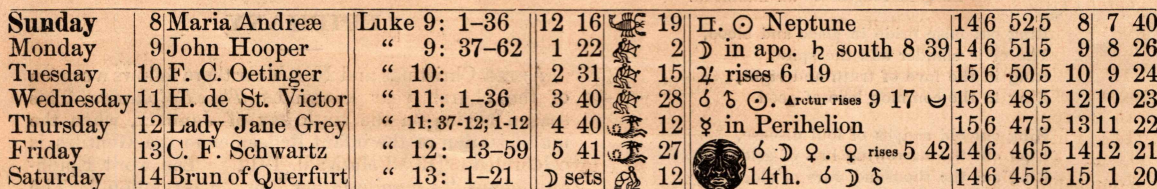 Sunday 8 Maria Andreæ Luke 9: 1–36 12 16 19 □. ☉ Neptune 14 6 52 5 8 7 40
Monday 9 John Hooper “ 9: 37–62 1 22 2 ☽ in apo. ♄ south 8 39 14 6 51 5 9 8 26
Tuesday 10 F. C. Oetinger “ 10: 2 31 15 ♃ rises 6 19 15 6 50 5 10 9 24
Wednesday 11 H. de St. Victor “ 11: 1–36 3 40 28 ☌ ♁ ☉. Arctur rises 9 17 15 6 48 5 12 10 23
Thursday 12 Lady Jane Grey “ 11: 37-12; 1-12 4 40 12 ☿ in Perihelion 15 6 47 5 13 11 22
Friday 13 C. F. Schwartz “ 12: 13–59 5 41 27 ☌ ☽ ♀. ♀ rises 5 42 14 6 46 5 14 12 21
Saturday 14 Brun of Querfurt “ 13: 1–21 ☽ sets 12 14th. ☌ ☽ ♁ 14 6 45 5 15 1 20